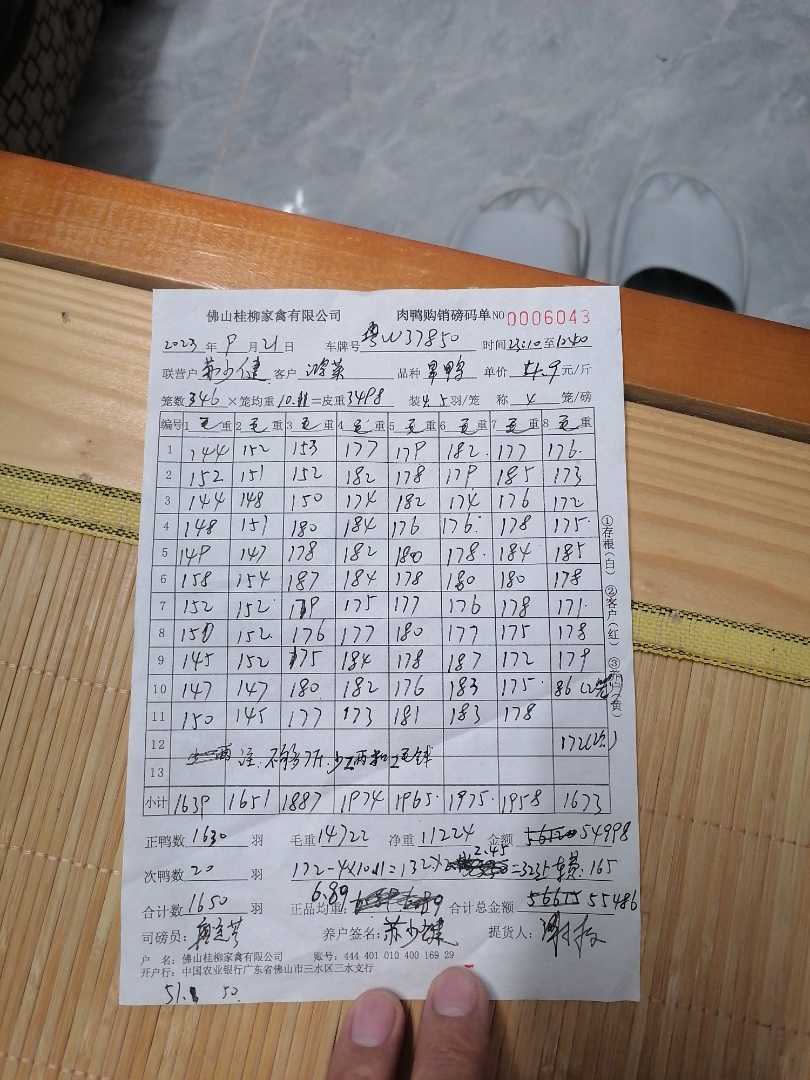 佛山桂柳家禽有限公司 肉鸭购销磅码单 NO 0006043
2023 年 9 月 21 日 车牌号 粤W37850 时间 23:10 至 12:40
联营户 苏少健 客户 鸿英 品种 单价 4.9 元/斤
笼数 346 ×笼均重 10.11 =皮重 3498 装 4.5 羽/笼 称 4 笼/磅
编号 1 毛重 2 毛重 3 毛重 4 毛重 5 毛重 6 毛重 7 毛重 8 毛重
1 144 152 153 177 179 182 177 176
2 152 151 152 182 178 179 185 173
3 144 148 150 174 182 174 176 172
4 148 151 180 184 176 176 178 175
5 149 147 178 182 180 178 184 185
6 158 154 187 184 178 180 180 178
7 152 152 179 175 177 176 178 171
8 150 152 176 177 180 177 175 178
9 145 152 175 184 178 187 172 179
10 147 147 180 182 176 183 175 86 (2笼)
11 150 145 177 173 181 183 178
12 注:不够7斤,少1两扣1毛钱 172(次)
13
小计 1639 1651 1887 1974 1965 1975 1958 1673
正鸭数 1630 羽 毛重 14722 净重 11224 金额 54998
次鸭数 20 羽 172-4×10.11=132× 2.45 =323 165
合计数 1650 羽 正品均重: 6.89 合计总金额 55486
司磅员: 养户签名: 苏少健 提货人:
户 名: 佛山桂柳家禽有限公司 账号: 444 401 010 400 169 29
开户行: 中国农业银行广东省佛山市三水区三水支行
51. 50.
①存根(白) ②客户(红) ③养户(黄)